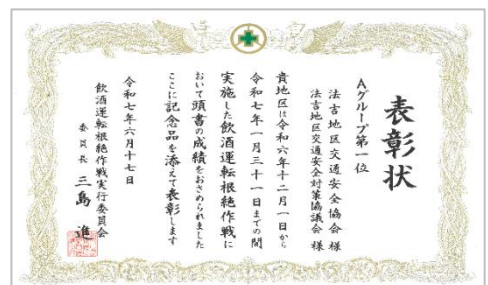 表彰状
Aグループ第一位
法吉地区交通安全協会 様
法吉地区交通安全対策協議会 様
貴地区は令和六年十二月一日から
令和七年一月三十一日までの間
実施した飲酒運転根絶作戦に
おいて頭書の成績をおさめられました
ここに記念品を添えて表彰します
令和七年六月十七日
飲酒運転根絶作戦実行委員会
委員長 三島 進